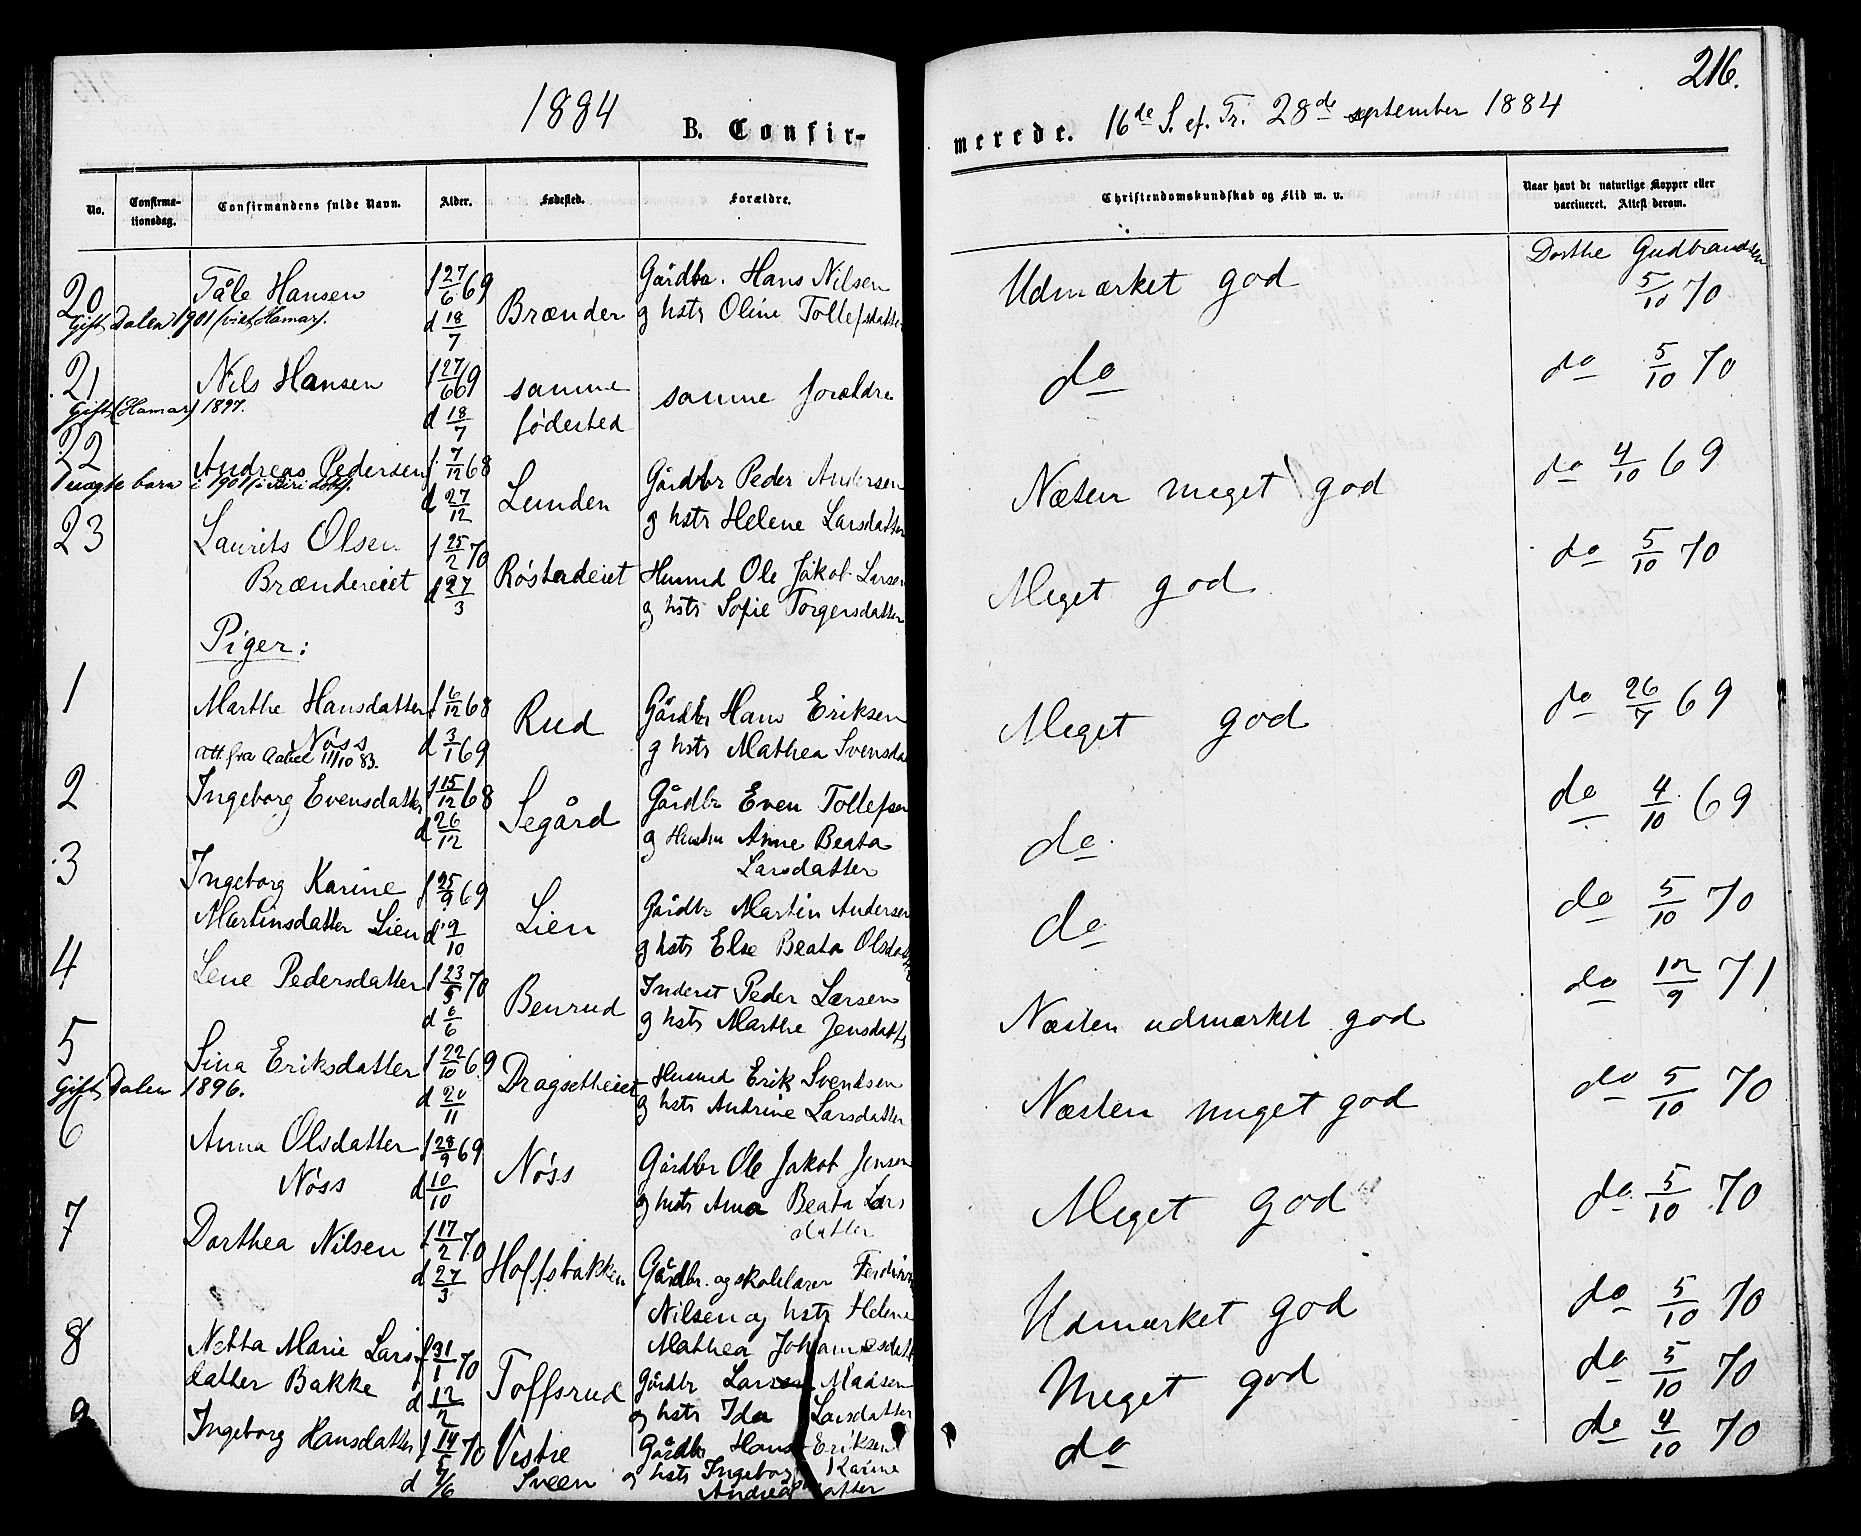 1884
B. Confir-
No.
Confirma-
tionsdag.
Confirmandens fulde Navn.
Alder.
Fødested.
Forældre.
20
Tåle Hansen
f 27/6 69
d 18/7
Brænder
Gårdbr. Hans Nilsen
g hstr Oline Tollefsdatter
Gift Dalen 1901 (viet Hamar).
21
Nils Hansen
f 27/6 69
d 18/7
samme
fødested
samme forældre
Gift (Hamar) 1897.
22
Andreas Pedersen
f 7/12 68
d 27/12
Lunden
Gårdbr Peder Andersen
g hstr Helene Larsdatter
1 uægte barn i 1901
23
Laurits Olsen
Brændereiet
f 25/2 70
d 27/3
Røstadeiet
Husmd Ole Jakob Larsen
g hstr Sofie Torgersdatter
Piger:
1
Marthe Hansdatter
Nøss
f 6/12 68
d 3/1 69
Rud
Gårdbr Hans Eriksen
g hstr Mathea Svensda
att. fra 11/10 83.
2
Ingeborg Evensdatter
f 15/12 68
d 26/12
Segård
Gårdbr Even Tollefsen
g Hustru Anne Beata
Larsdatter
3
Ingeborg Karine
Martinsdatter Lien
f 25/9 69
d 9/10
Lien
Gårdbr Martin Andersen
g hstr Else Beata Olsdatt
4
Lene Pedersdatter
f 23/5 70
d 6/6
Benrud
Inderst Peder Larsen
g hstr Marthe Jensdatt
5
Sina Eriksdatter
f 22/10 69
d 20/11
Dragsetheiet
Husmd Erik Svendsen
g hstr Andrine Larsdatter
Gift Dalen 1896.
6
Anna Olsdatter
Nøss
f 28/9 69
d 10/10
Nøss
Gårdbr Ole Jakob Jensen
g hstr Anna Beata Lars
datter
7
Dorthea Nilsen
f 17/2 70
d 27/3
Hoffsbakken
Gårdbr. og skolelærer
Nilsen og hstr Helene
Mathea Johannesdatt
8
Netta Marie Lars
datter Bakke
f 31/1 70
d 12/2
Toffsrud
Gårdbr Larsen Madsen
g hstr Ida Larsdatter
9
Ingeborg Hansdatter
f 14/5 70
d 7/6
Vestre
Sveen
Gårdbr Hans Eriksen
g hstr Ingeborg Karine
Andreasdatter
216.
merede. 16de S. ef. Tr. 28de september 1884
Christendomskundskab og Flid m. v.
Naar havt de naturlige Kopper eller
vaccineret. Attest derom.
Udmærket god
Dorthe Gudbrandsen
5/10 70
do
do 5/10 70
Næsten meget god
do 4/10 69
Meget god
do 5/10 70
Meget god
do 26/7 69
do
do 4/10 69
do
do 5/10 70
Næsten udmærket god
do 12/9 71
Næsten meget god
do 5/10 70
Meget god
do 5/10 70
Udmærket god
do 5/10 70
Meget god
do 5/10 70
do
do 4/10 70